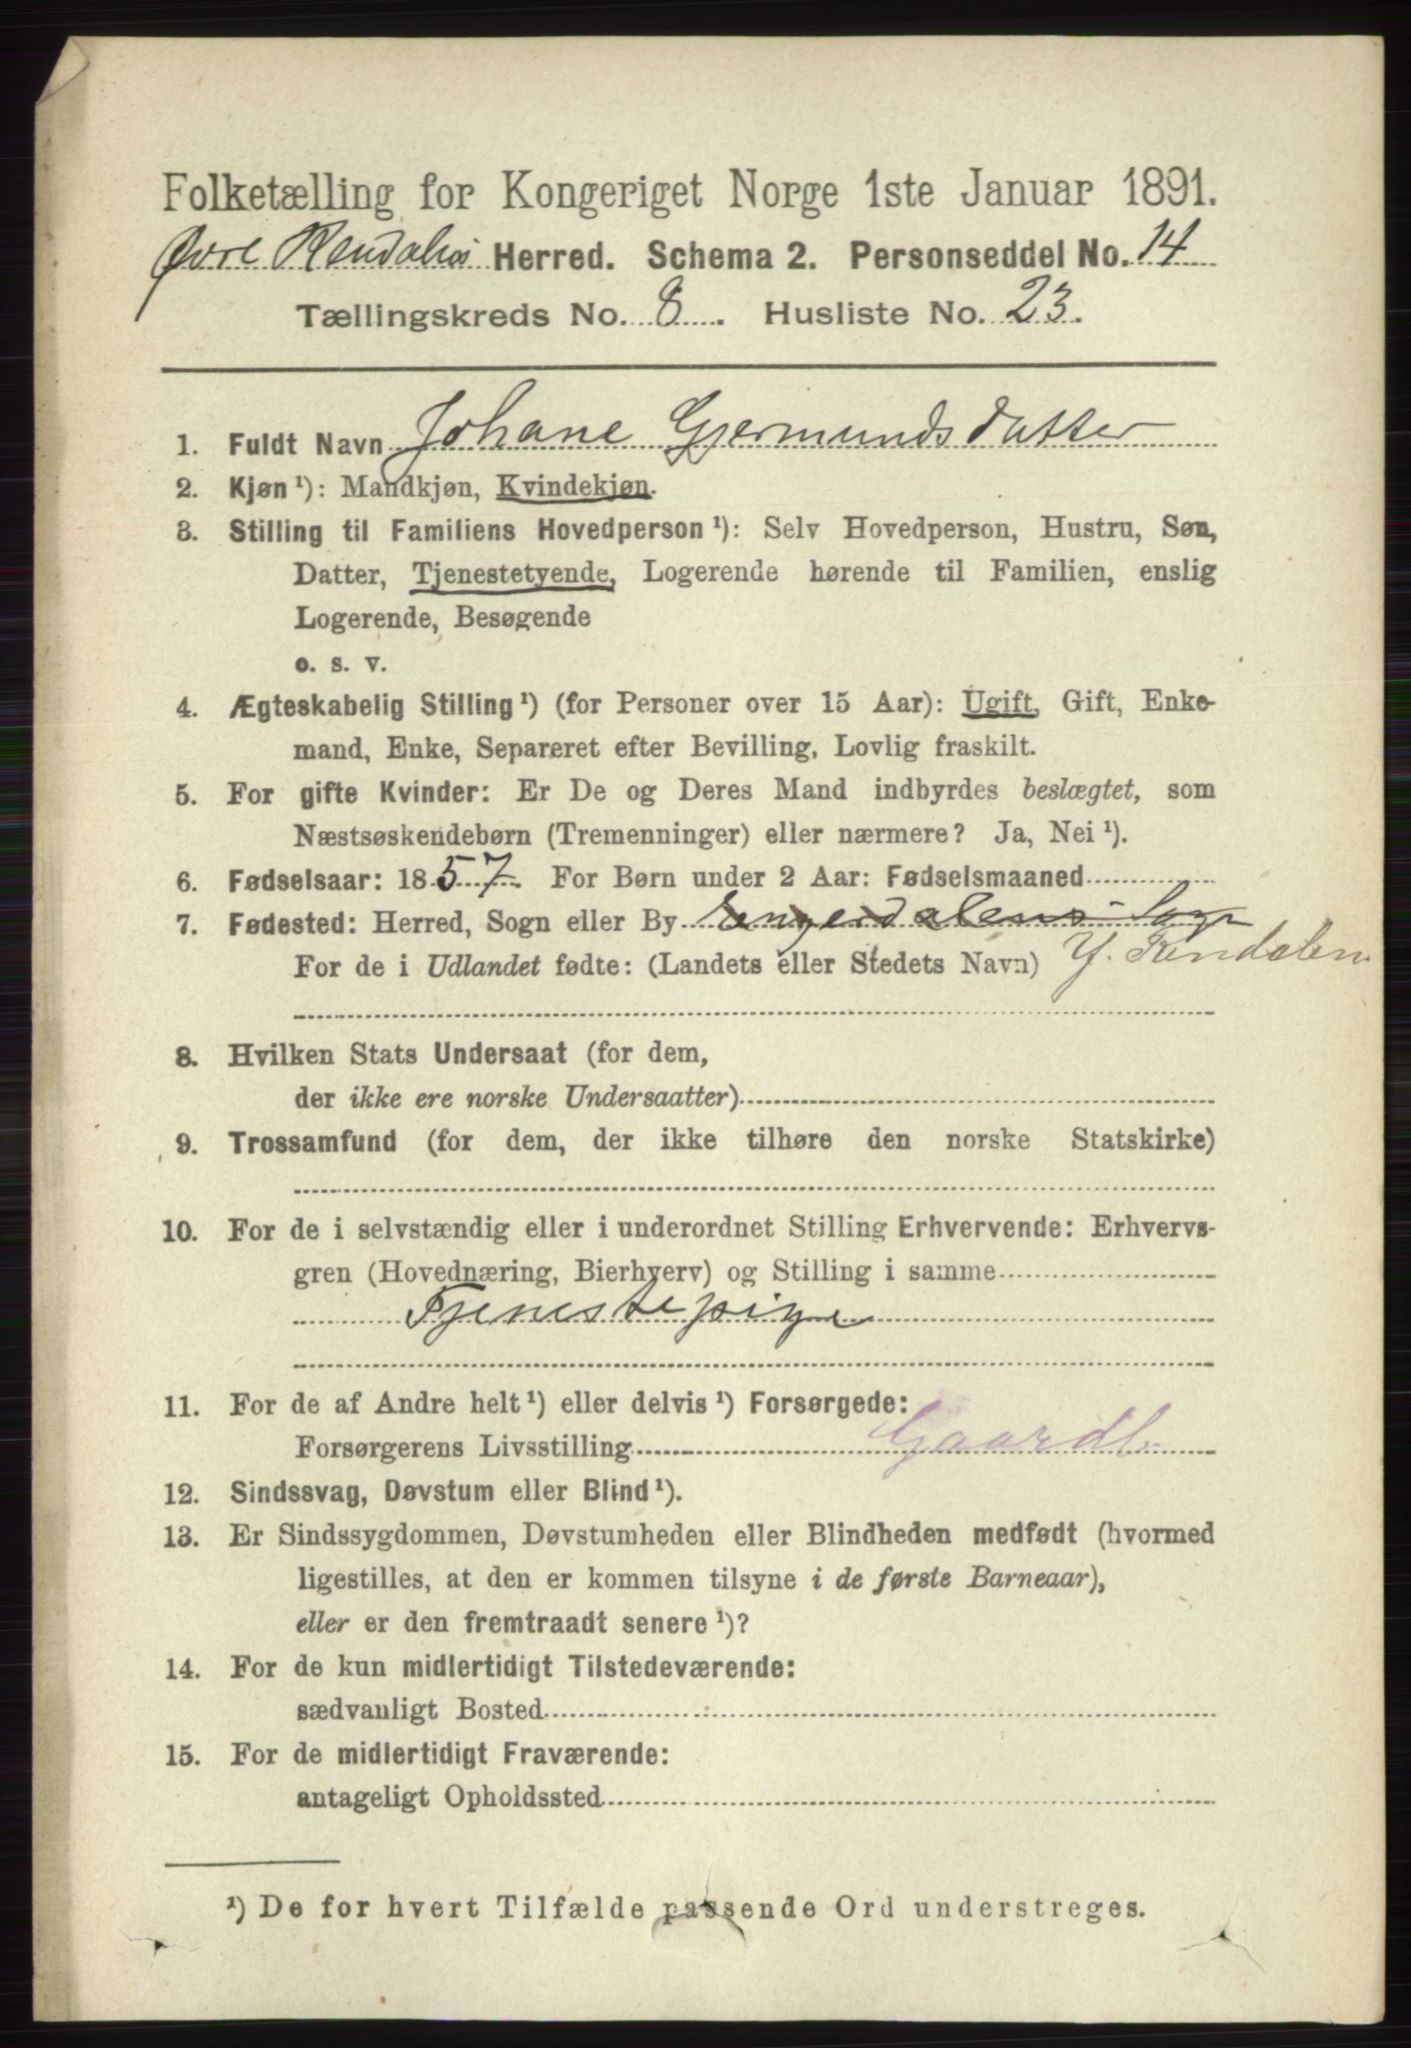 Folketælling for Kongeriget Norge 1ste Januar 1891.
Øvre Rendalens Herred. Schema 2. Personseddel No. 14
Tællingskreds No. 8. Husliste No. 23.
1. Fuldt Navn Johane Gjermundsdatter
2. Kjøn¹): Mandkjøn, Kvindekjøn.
3. Stilling til Familiens Hovedperson¹): Selv Hovedperson, Hustru, Søn,
Datter, Tjenestetyende, Logerende hørende til Familien, enslig
Logerende, Besøgende
o. s. v.
4. Ægteskabelig Stilling¹) (for Personer over 15 Aar): Ugift, Gift, Enke-
mand, Enke, Separeret efter Bevilling, Lovlig fraskilt.
5. For gifte Kvinder: Er De og Deres Mand indbyrdes beslægtet, som
Næstsøskendebørn (Tremenninger) eller nærmere? Ja, Nei¹).
6. Fødselsaar: 1857. For Børn under 2 Aar: Fødselsmaaned
7. Fødested: Herred, Sogn eller By Engerdalens Sogn
For de i Udlandet fødte: (Landets eller Stedets Navn) Y. Rendalen
8. Hvilken Stats Undersaat (for dem,
der ikke ere norske Undersaatter)
9. Trossamfund (for dem, der ikke tilhøre den norske Statskirke)
10. For de i selvstændig eller i underordnet Stilling Erhvervende: Erhvervs-
gren (Hovednæring, Bierhverv) og Stilling i samme
Tjenestepige
11. For de af Andre helt¹) eller delvis¹) Forsørgede:
Forsørgerens Livsstilling Gaardb.
12. Sindssvag, Døvstum eller Blind¹).
13. Er Sindssygdommen, Døvstumheden eller Blindheden medfødt (hvormed
ligestilles, at den er kommen tilsyne i de første Barneaar),
eller er den fremtraadt senere¹)?
14. For de kun midlertidigt Tilstedeværende:
sædvanligt Bosted
15. For de midlertidigt Fraværende:
antageligt Opholdssted
¹) De for hvert Tilfælde passende Ord understreges.